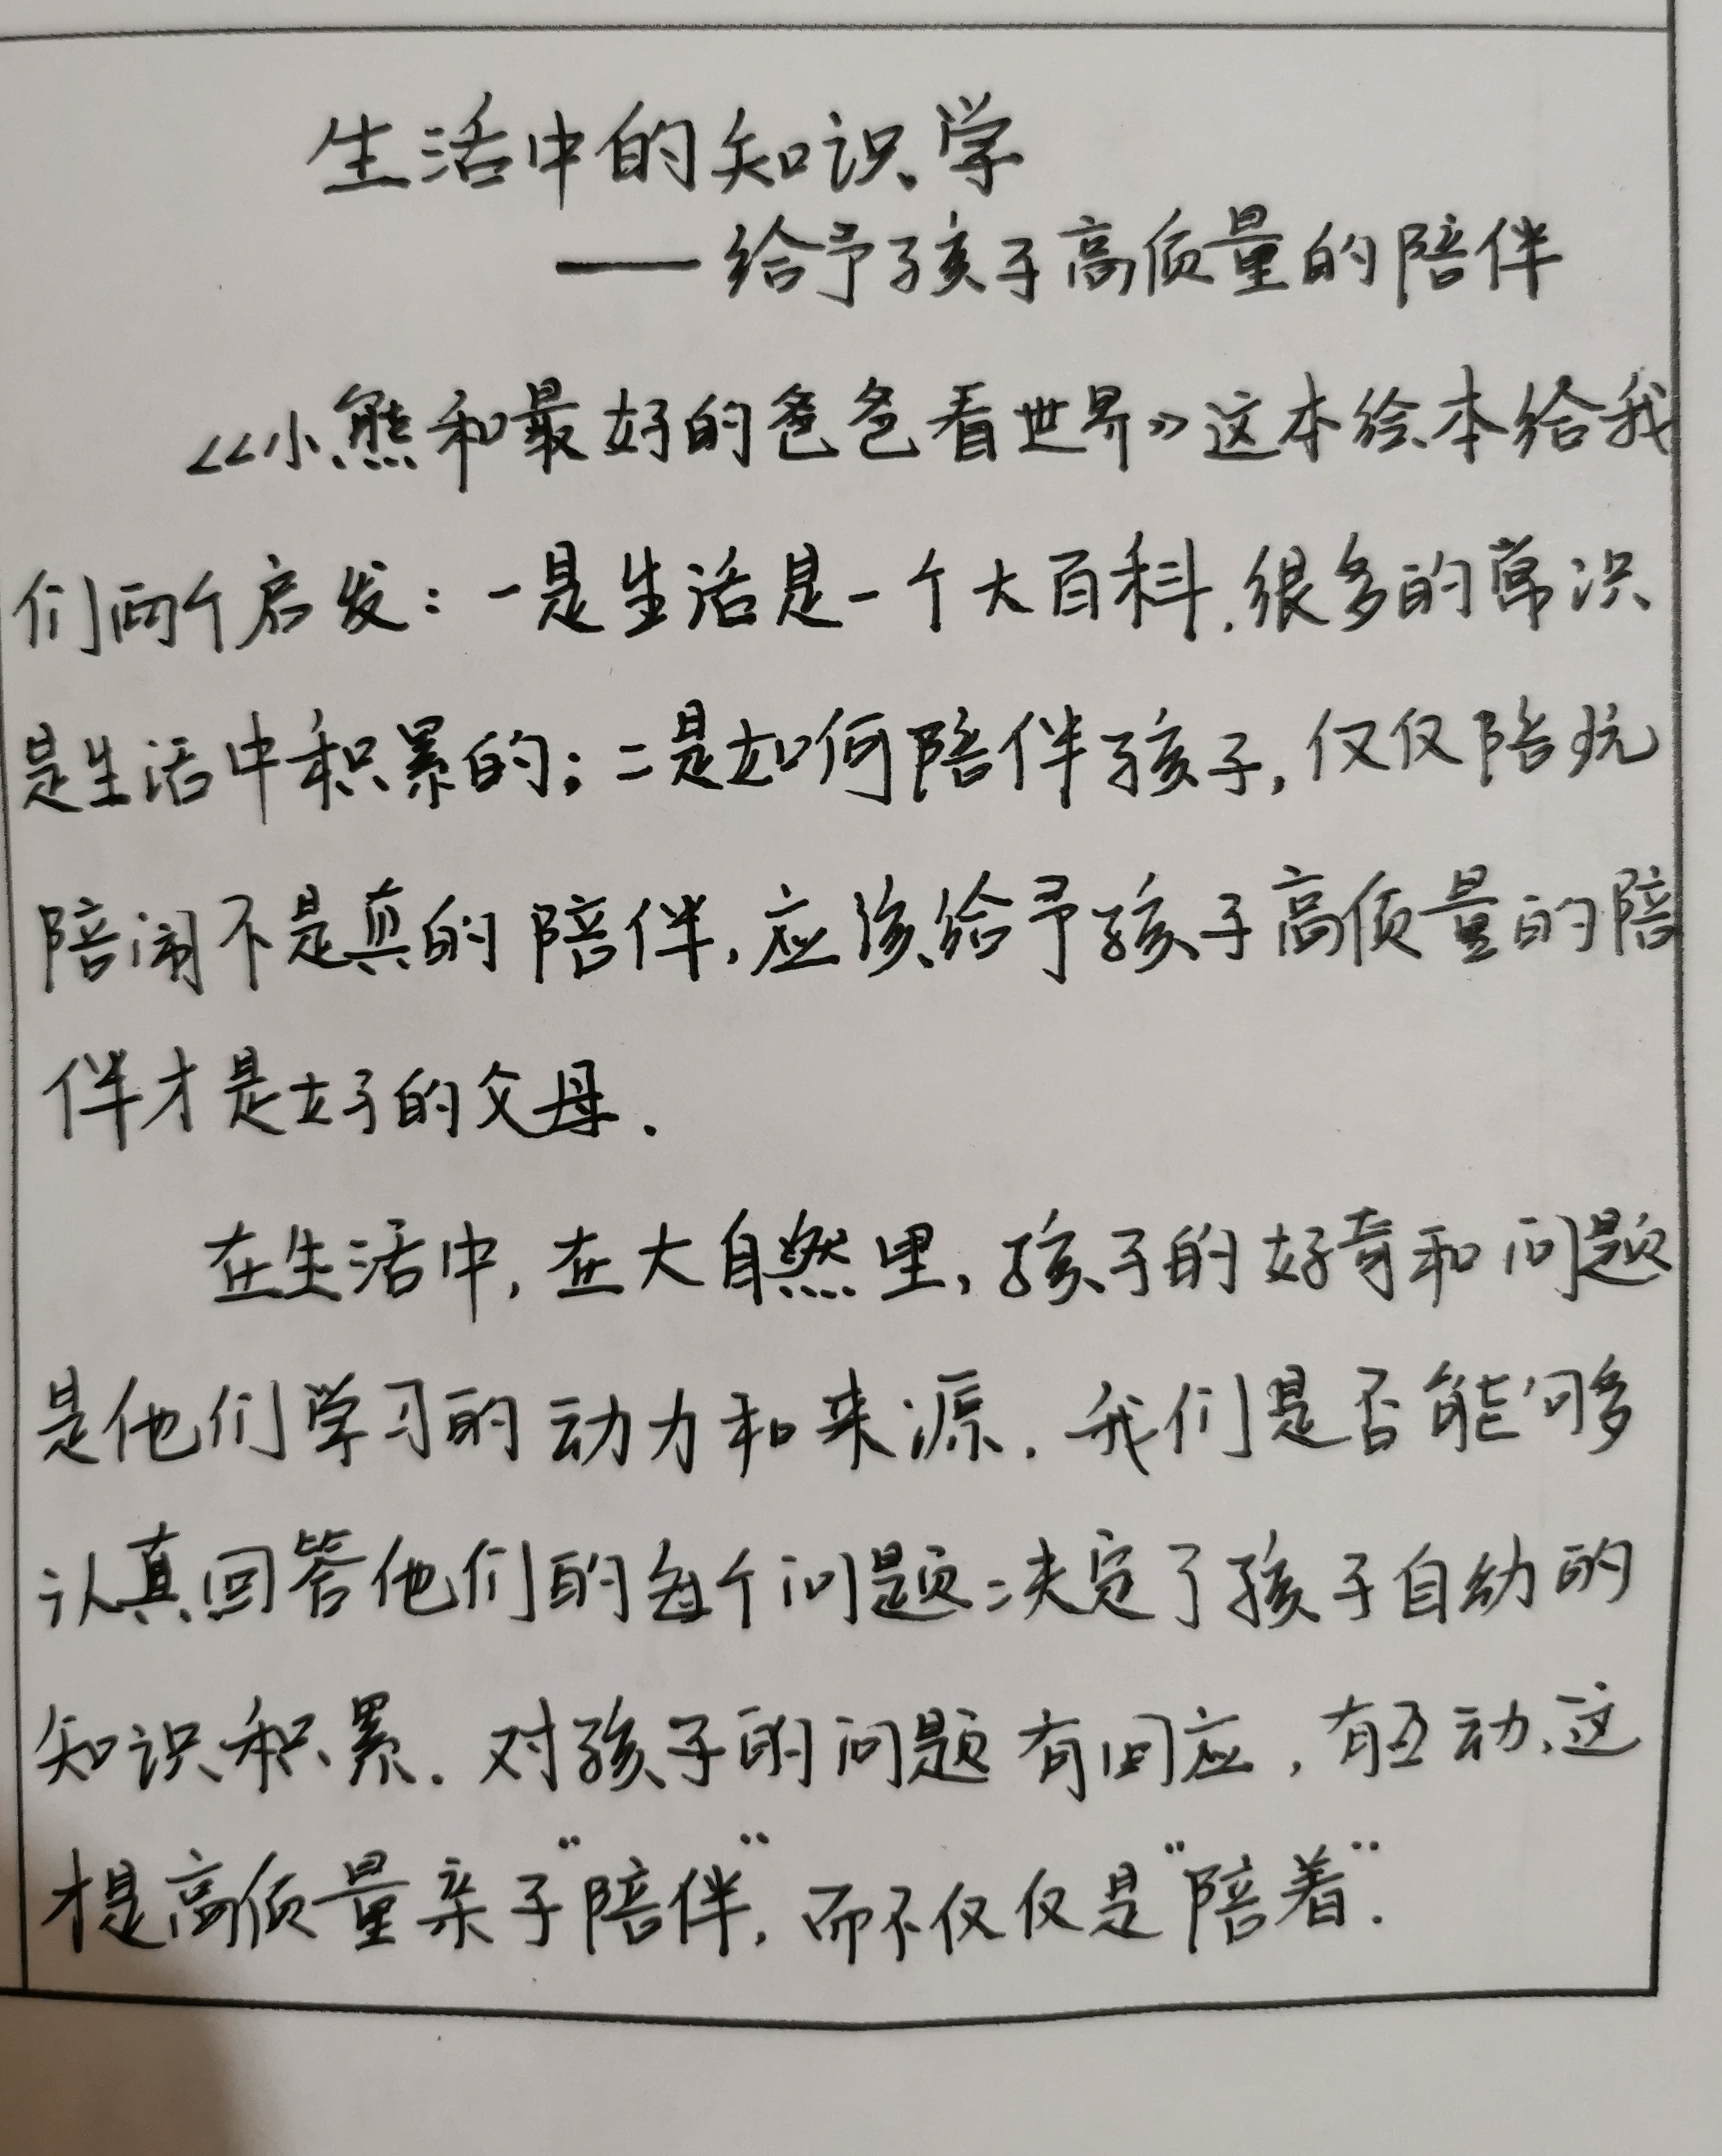 生活中的知识学
——给予孩子高质量的陪伴
《小熊和最好的爸爸看世界》这本绘本给我
们两个启发：一是生活是一个大百科.很多的常识
是生活中积累的；二是如何陪伴孩子,仅仅陪玩
陪闹不是真的陪伴,应该给予孩子高质量的陪
伴才是好的父母.
在生活中,在大自然里,孩子的好奇和问题
是他们学习的动力和来源.我们是否能够
认真回答他们的每个问题:决定了孩子自幼的
知识积累.对孩子的问题有回应,有互动,这
才是高质量亲子"陪伴",而不仅仅是"陪着".